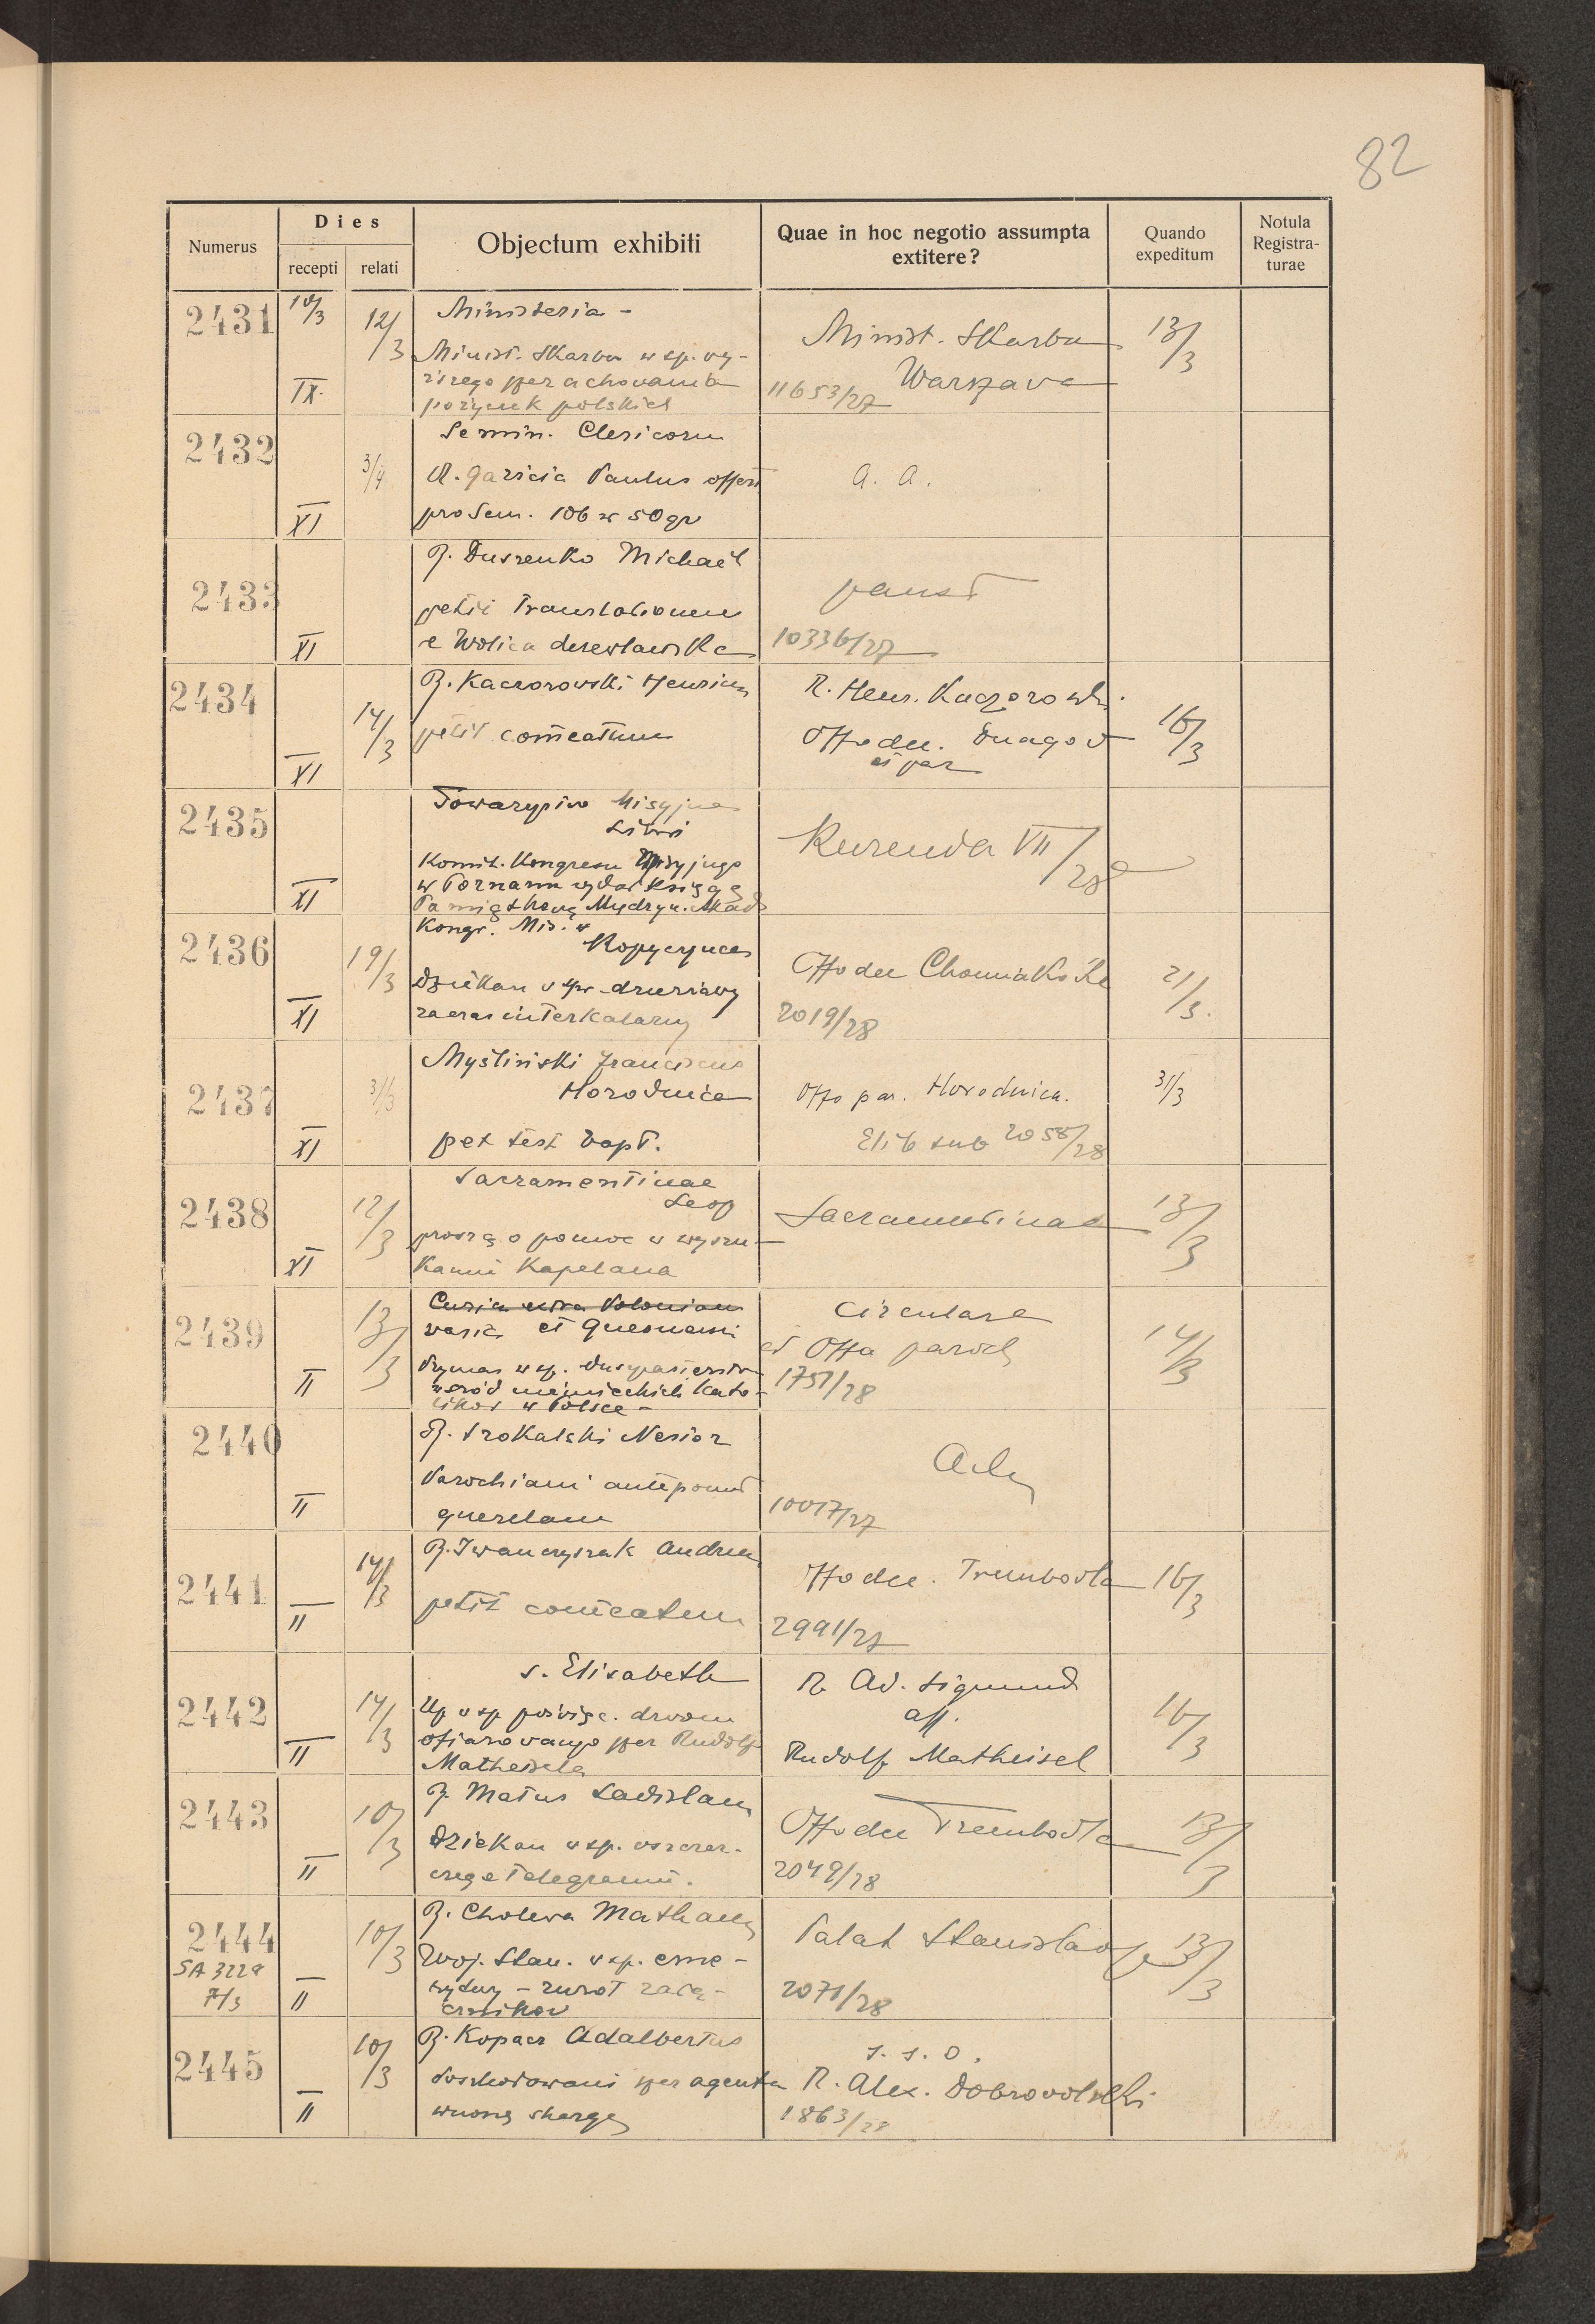 82
Numerus
Dies
recepti
relati
Objectum exhibiti
Quae in hoc negotio assumpta
extitere?
Quando
expeditum
Notula
Registra-
turae
2431
10/3
12/3
IX
Ministeria -
Minist. Skarbu w sp. wy-
przerachowania
pożyczek polskich
Minist. Skarbu
Warszawa
11653/27
13/3
2432
3/4
XI
Semin. Clericoru
Paulus offert
pro Sem. 106 zł 50 gr
a. a.
2433
XI
R. Duszenko Michael
petit translationem
e Wolica
10336/27
2434
14/3
XI
R. Kaczorowski Henricus
petit com̄eatum
R. Henr. Kaczorowski
Offo dec.
et par
16/3
2435
XI
Towarzystwo Misyjne
Libri
Komit. Kongresu Misyjnego
w Poznaniu wydał księgę
Pamiątkową Międzyn. Akad
Kongr. Mis. w
Kurenda VII/28
2436
19/3
XI
Kopyczyńce
Dziekan w spr. dzierżawy
za czas interkalarny
Offo dec
2019/28
21/3
2437
31/3
XI
Myśliński Franciscus
Horodnica
pet test bapt.
Offo par. Horodnica.
sub 2058/28
31/3
2438
12/3
XI
Sacramentinae
Leop
proszą o pomoc w wyszu-
kaniu kapelana
Sacramentinae
13/3
2439
13/3
II
varia et
Prymas w sp. duszpasterstw
wśród niemieckich kato-
lików w Polsce -
Circulare
et Offa paroch
1751/28
14/3
2440
II
R. Szokalski Nestor
Parochiani
querelam
10017/27
2441
14/3
II
R. Iwanczyszak Andreas
petit com̄eatum
Offo dec. Trembowla
2991/27
16/3
2442
14/3
II
s. Elisabeth
w sp. poświęc. dzwonu
ofiarowanego przez Rudolfa
Matheisela
R. Ad. Sigmund
Rudolf Matheisel
16/3
2443
10/3
II
R. Matus Ladislaus
Dziekan w sp.
telegramu.
Offo dec Trembowla
2049/28
13/3
2444
SA 3229
7/3
10/3
II
R. Cholewa Mathaeus
Woj. Stan. w sp. eme-
rytury - zwrot załą-
czników
Palat Stanislao
2071/28
13/3
2445
10/3
II
R. Kopacz Adalbertus
Poszkodowani przez agenta
wnoszą skargę
s. s. o.
R. Alex. Dobrowolski
1863/28